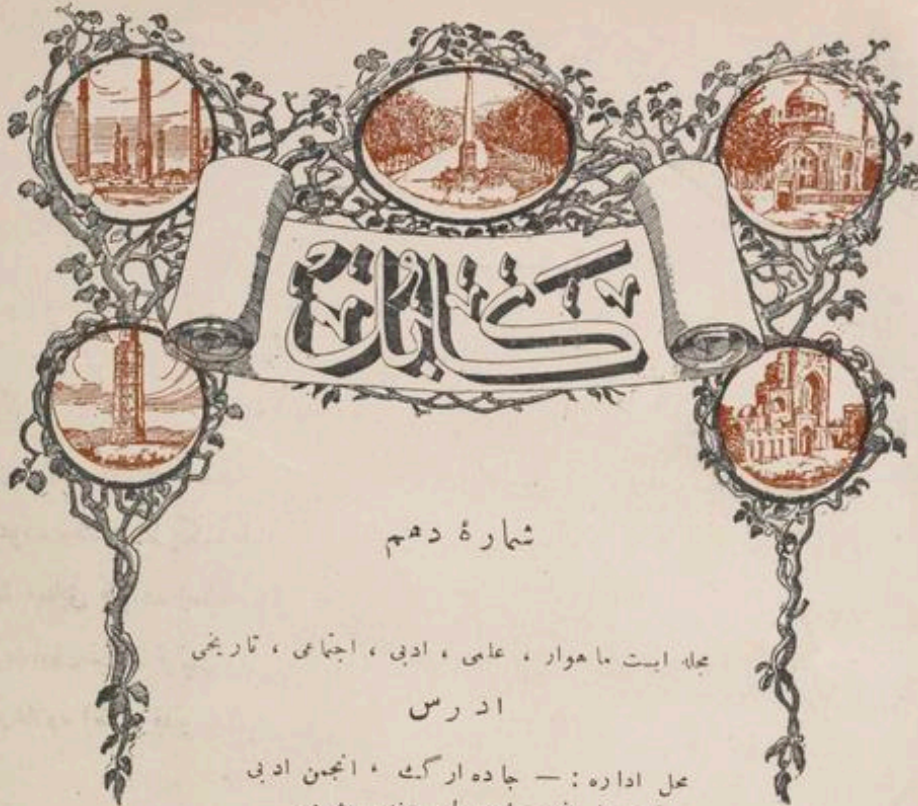 کابل
شمارهٔ دهم
مجله ایست ماهوار ، علمی ، ادبی ، اجتماعی ، تاریخی
ادرس
محل اداره : — جاده ارگ ، انجمن ادبی